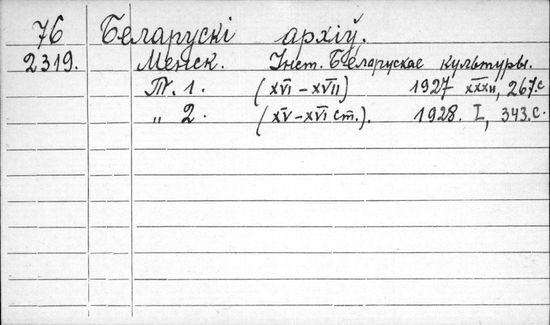 76 Беларускі архіў.
2319. Менск. Інст. Беларускае культуры.
Т. 1. (XVI – XVII) 1927 XXXII, 267.с
„ 2. (XV – XVI ст.). 1928. I, 343.с.